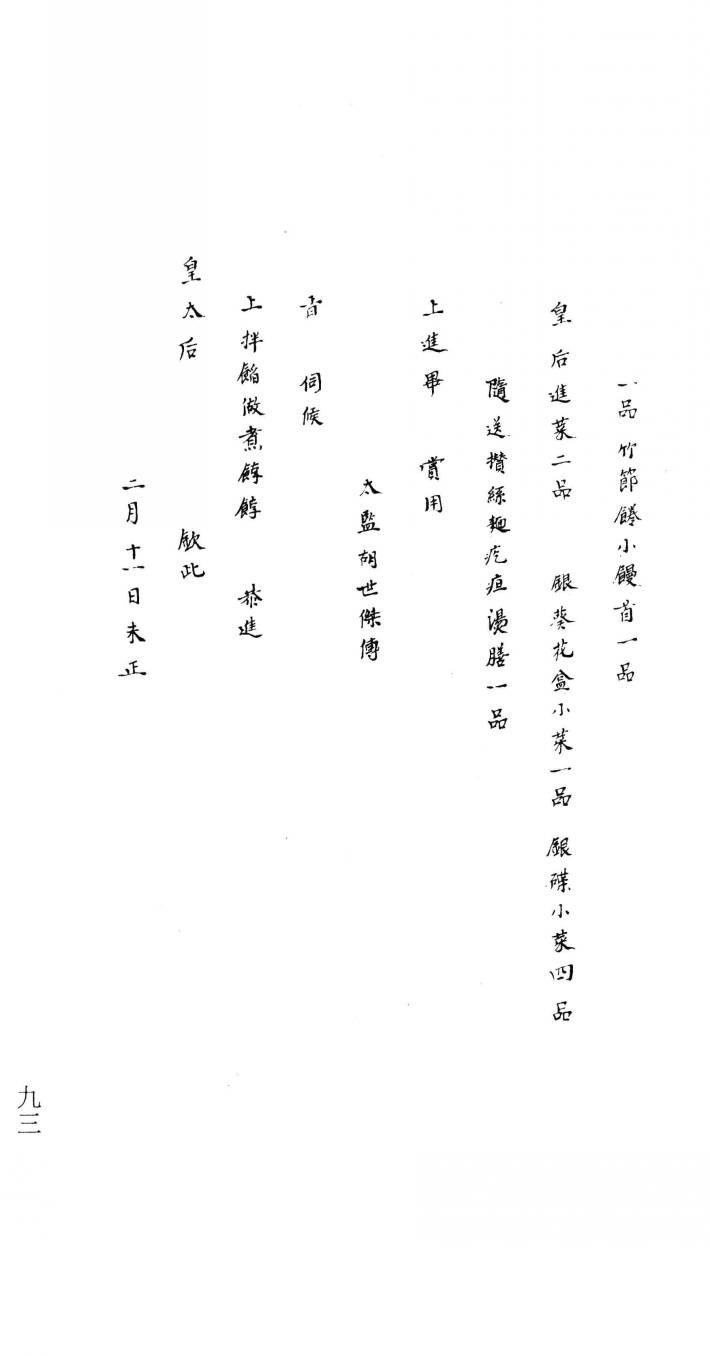 一品 竹節饝小饅首一品
皇后進菜二品 銀葵花盒小菜一品 銀碟小菜四品
隨送攢絲麵疙疸湯膳一品
上進畢 賞用
太監胡世傑傳
旨 伺候
上拌餡做煮餑餑 恭進
皇太后 欽此
二月十一日未正
九三